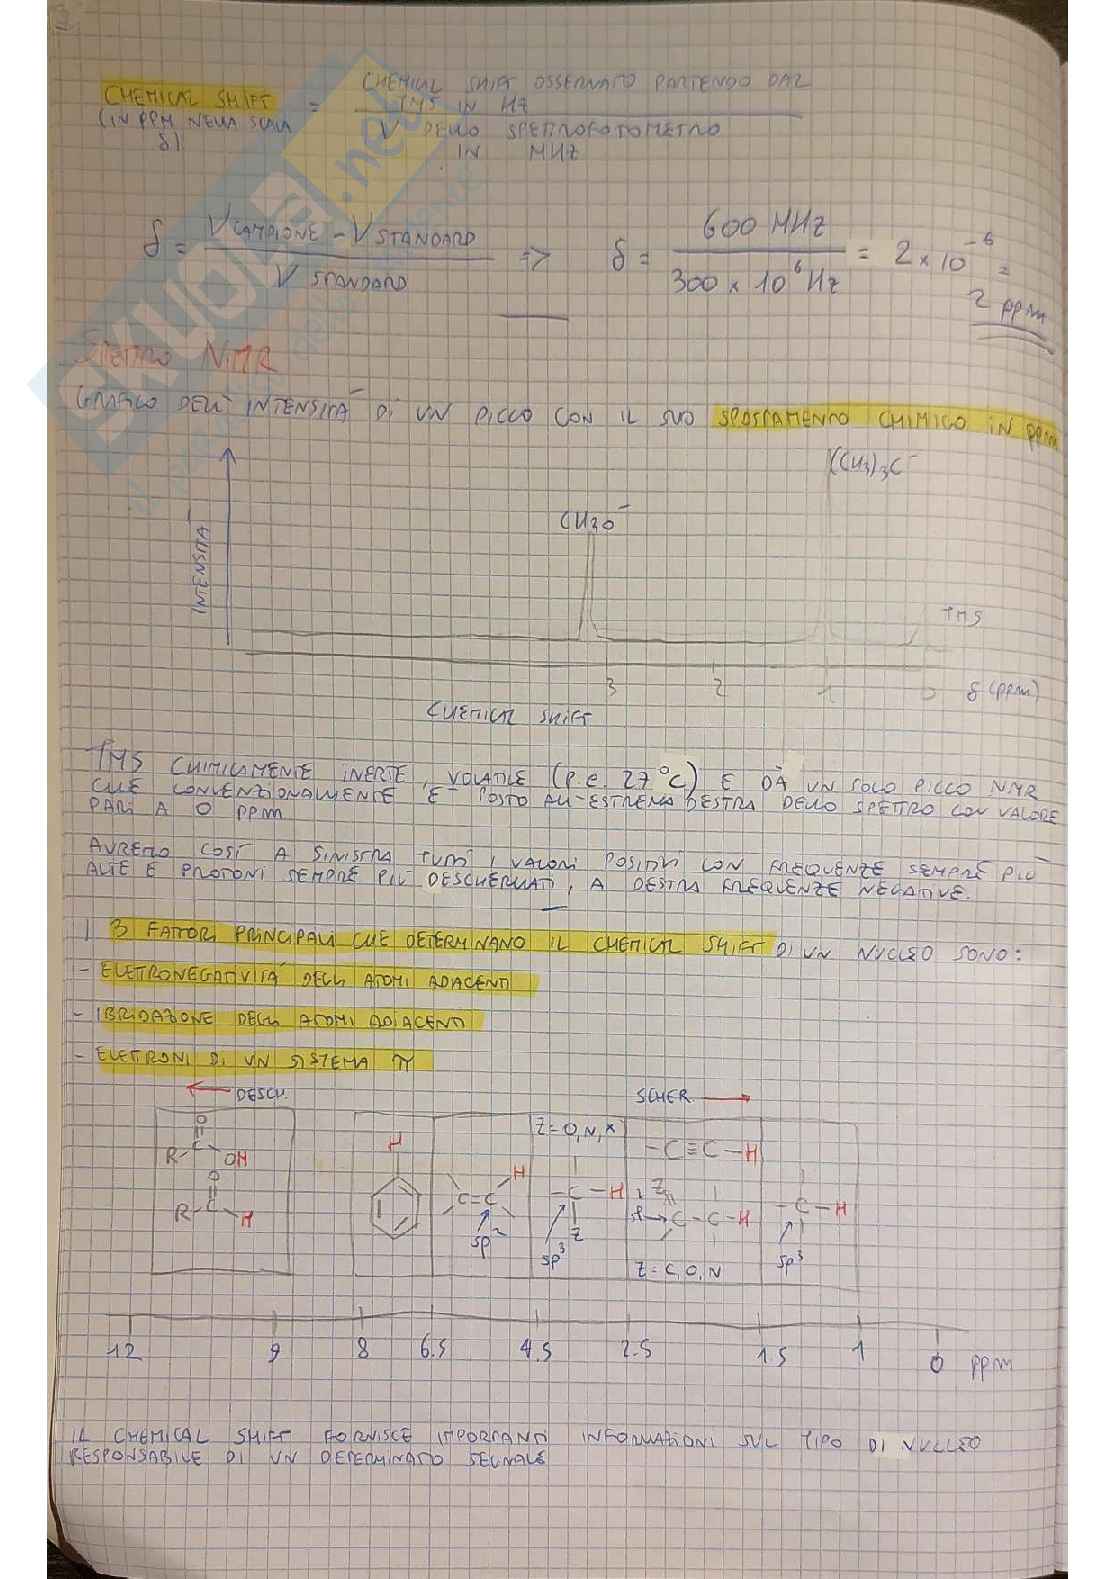 CHEMICAL SHIFT OSSERVATO PARTENDO DAL
CHEMICAL SHIFT = TMS IN HZ
(IN PPM NELLA SCALA δ) ν DELLO SPETTROFOTOMETRO
IN MHZ
δ = (V CAMPIONE - V STANDARD) / V STANDARD => δ = 600 MHz / 300 × 10⁶ Hz = 2 × 10⁻⁶ =
2 ppm
SPETTRO NMR
GRAFICO DELL' INTENSITÀ DI UN PICCO CON IL SUO SPOSTAMENTO CHIMICO IN ppm
(CH3)3C-
CH3O-
INTENSITÀ
TMS
3 2 1 0 δ (ppm)
CHEMICAL SHIFT
TMS CHIMICAMENTE INERTE, VOLATILE (P.E. 27°C) E DÀ UN SOLO PICCO NMR
CHE CONVENZIONALMENTE È POSTO ALL'ESTREMA DESTRA DELLO SPETTRO CON VALORE
PARI A 0 ppm
AVREMO COSÌ A SINISTRA TUTTI I VALORI POSITIVI CON FREQUENZE SEMPRE PIÙ
ALTE E PROTONI SEMPRE PIÙ DESCHERMATI, A DESTRA FREQUENZE NEGATIVE.
I 3 FATTORI PRINCIPALI CHE DETERMINANO IL CHEMICAL SHIFT DI UN NUCLEO SONO:
- ELETRONEGATIVITÀ DEGLI ATOMI ADIACENTI
- IBRIDAZIONE DEGLI ATOMI ADIACENTI
- ELETRONI DI UN SISTEMA π
← DESCH. SCHER. →
O H Z=O,N,X -C≡C-H
R-C OH
O H
R-C H C=C -C-H Z C-C-H -C-H
sp² sp³ Z Z=C,O,N sp³
12 9 8 6.5 4.5 2.5 1.5 1 0 ppm
IL CHEMICAL SHIFT FORNISCE IMPORTANTI INFORMAZIONI SUL TIPO DI NUCLEO
RESPONSABILE DI UN DETERMINATO SEGNALE
SKUOLA.net